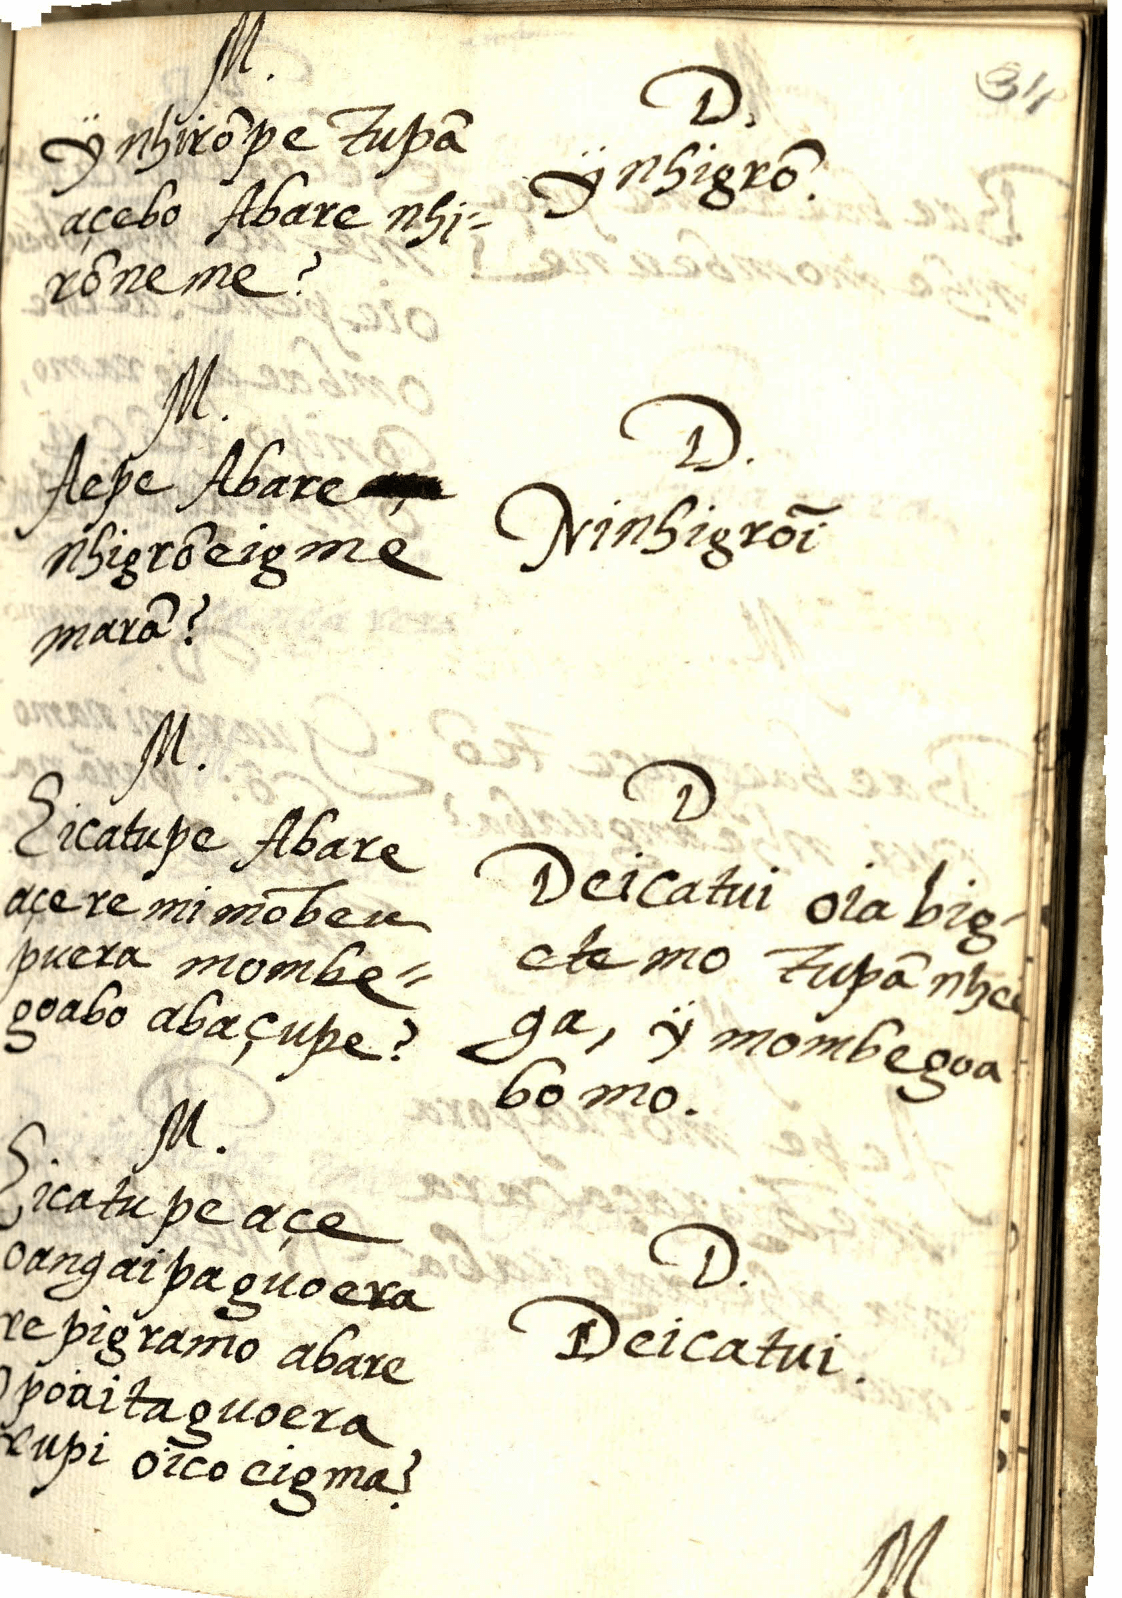 34
M.
Ÿ nhirõpe Tupã
açebo Abare nhi=
rõneme?
D.
Ÿnhigrõ.
M.
Aepe Abare
nhigrõeigme
marã?
D.
Ninhigroĩ
M.
Eicatupe Abare
açeremimõbeu
puera mombe=
goabo abaçupe?
D
Deicatui oiabig-
ete mo Tupã nhee
ga, ÿ mombegoa
bo mo.
M.
Eicatupe açe
oangaipaguoera
repigramo abare
opoaitaguoera
rupi oico eigma?
D.
Deicatui.
M